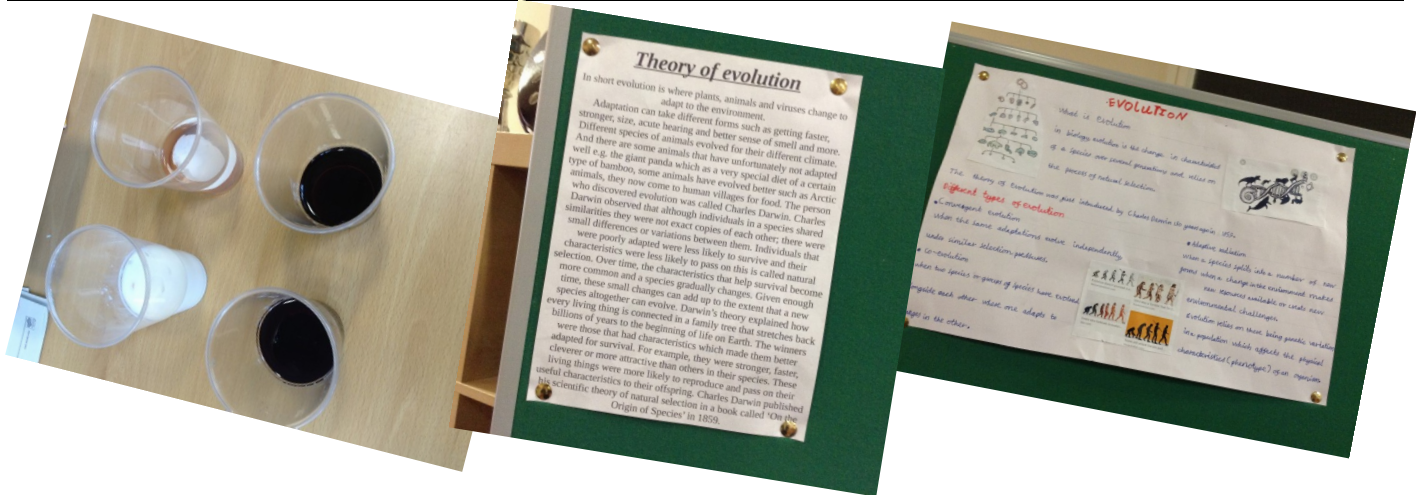 Theory of evolution
In short evolution is where plants, animals and viruses change to
adapt to the environment.
Adaptation can take different forms such as getting faster,
stronger, size, acute hearing and better sense of smell and more.
Different species of animals evolved for their different climate.
And there are some animals that have unfortunately not adapted
well e.g. the giant panda which as a very special diet of a certain
type of bamboo, some animals have evolved better such as Arctic
animals, they now come to human villages for food. The person
who discovered evolution was called Charles Darwin. Charles
Darwin observed that although individuals in a species shared
similarities they were not exact copies of each other; there were
small differences or variations between them. Individuals that
were poorly adapted were less likely to survive and their
characteristics were less likely to pass on this is called natural
selection. Over time, the characteristics that help survival become
more common and a species gradually changes. Given enough
time, these small changes can add up to the extent that a new
species altogether can evolve. Darwin's theory explained how
every living thing is connected in a family tree that stretches back
billions of years to the beginning of life on Earth. The winners
were those that had characteristics which made them better
adapted for survival. For example, they were stronger, faster,
cleverer or more attractive than others in their species. These
living things were more likely to reproduce and pass on their
useful characteristics to their offspring. Charles Darwin published
his scientific theory of natural selection in a book called 'On the
Origin of Species' in 1859.
EVOLUTION
What is Evolution
in biology, evolution is the change in characteristics
of a species over several generations and relies on
the process of natural selection.
The theory of Evolution was first introduced by Charles Darwin
Different types of evolution
• Convergent evolution
when the same adaptations evolve independently
under similar selection pressures.
• Co-evolution
when two species or groups of species have evolved
alongside each other where one adapts to
changes in the other.
• Adaptive radiation
when a species splits into a number of new
forms when a change in the environment makes
new resources available or creates new
environmental challenges.
Evolution relies on there being genetic variation
in a population which affects the physical
characteristics (phenotype) of an organism